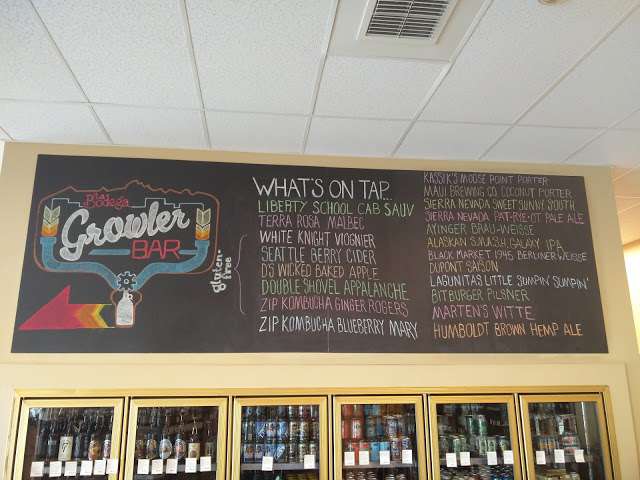 La
Bodega
Growler
BAR
gluten-
free
WHAT'S ON TAP...
LIBERTY SCHOOL CAB SAUV
TERRA ROSA MALBEC
WHITE KNIGHT VIOGNIER
SEATTLE BERRY CIDER
D'S WICKED BAKED APPLE
DOUBLE SHOVEL APPALANCHE
ZIP KOMBUCHA GINGER ROGERS
ZIP KOMBUCHA BLUEBERRY MARY
KASSIK'S MOOSE POINT PORTER
MAUI BREWING CO. COCONUT PORTER
SIERRA NEVADA SWEET SUNNY SOUTH
SIERRA NEVADA PAT-RYE-OT PALE ALE
AYINGER BRAU-WEISSE
ALASKAN GALAXY IPA
BLACK MARKET 1945 BERLINER WEISSE
DUPONT SAISON
LAGUNITAS LITTLE SUMPIN' SUMPIN'
BITBURGER PILSNER
MARTEN'S WITTE
HUMBOLDT BROWN HEMP ALE